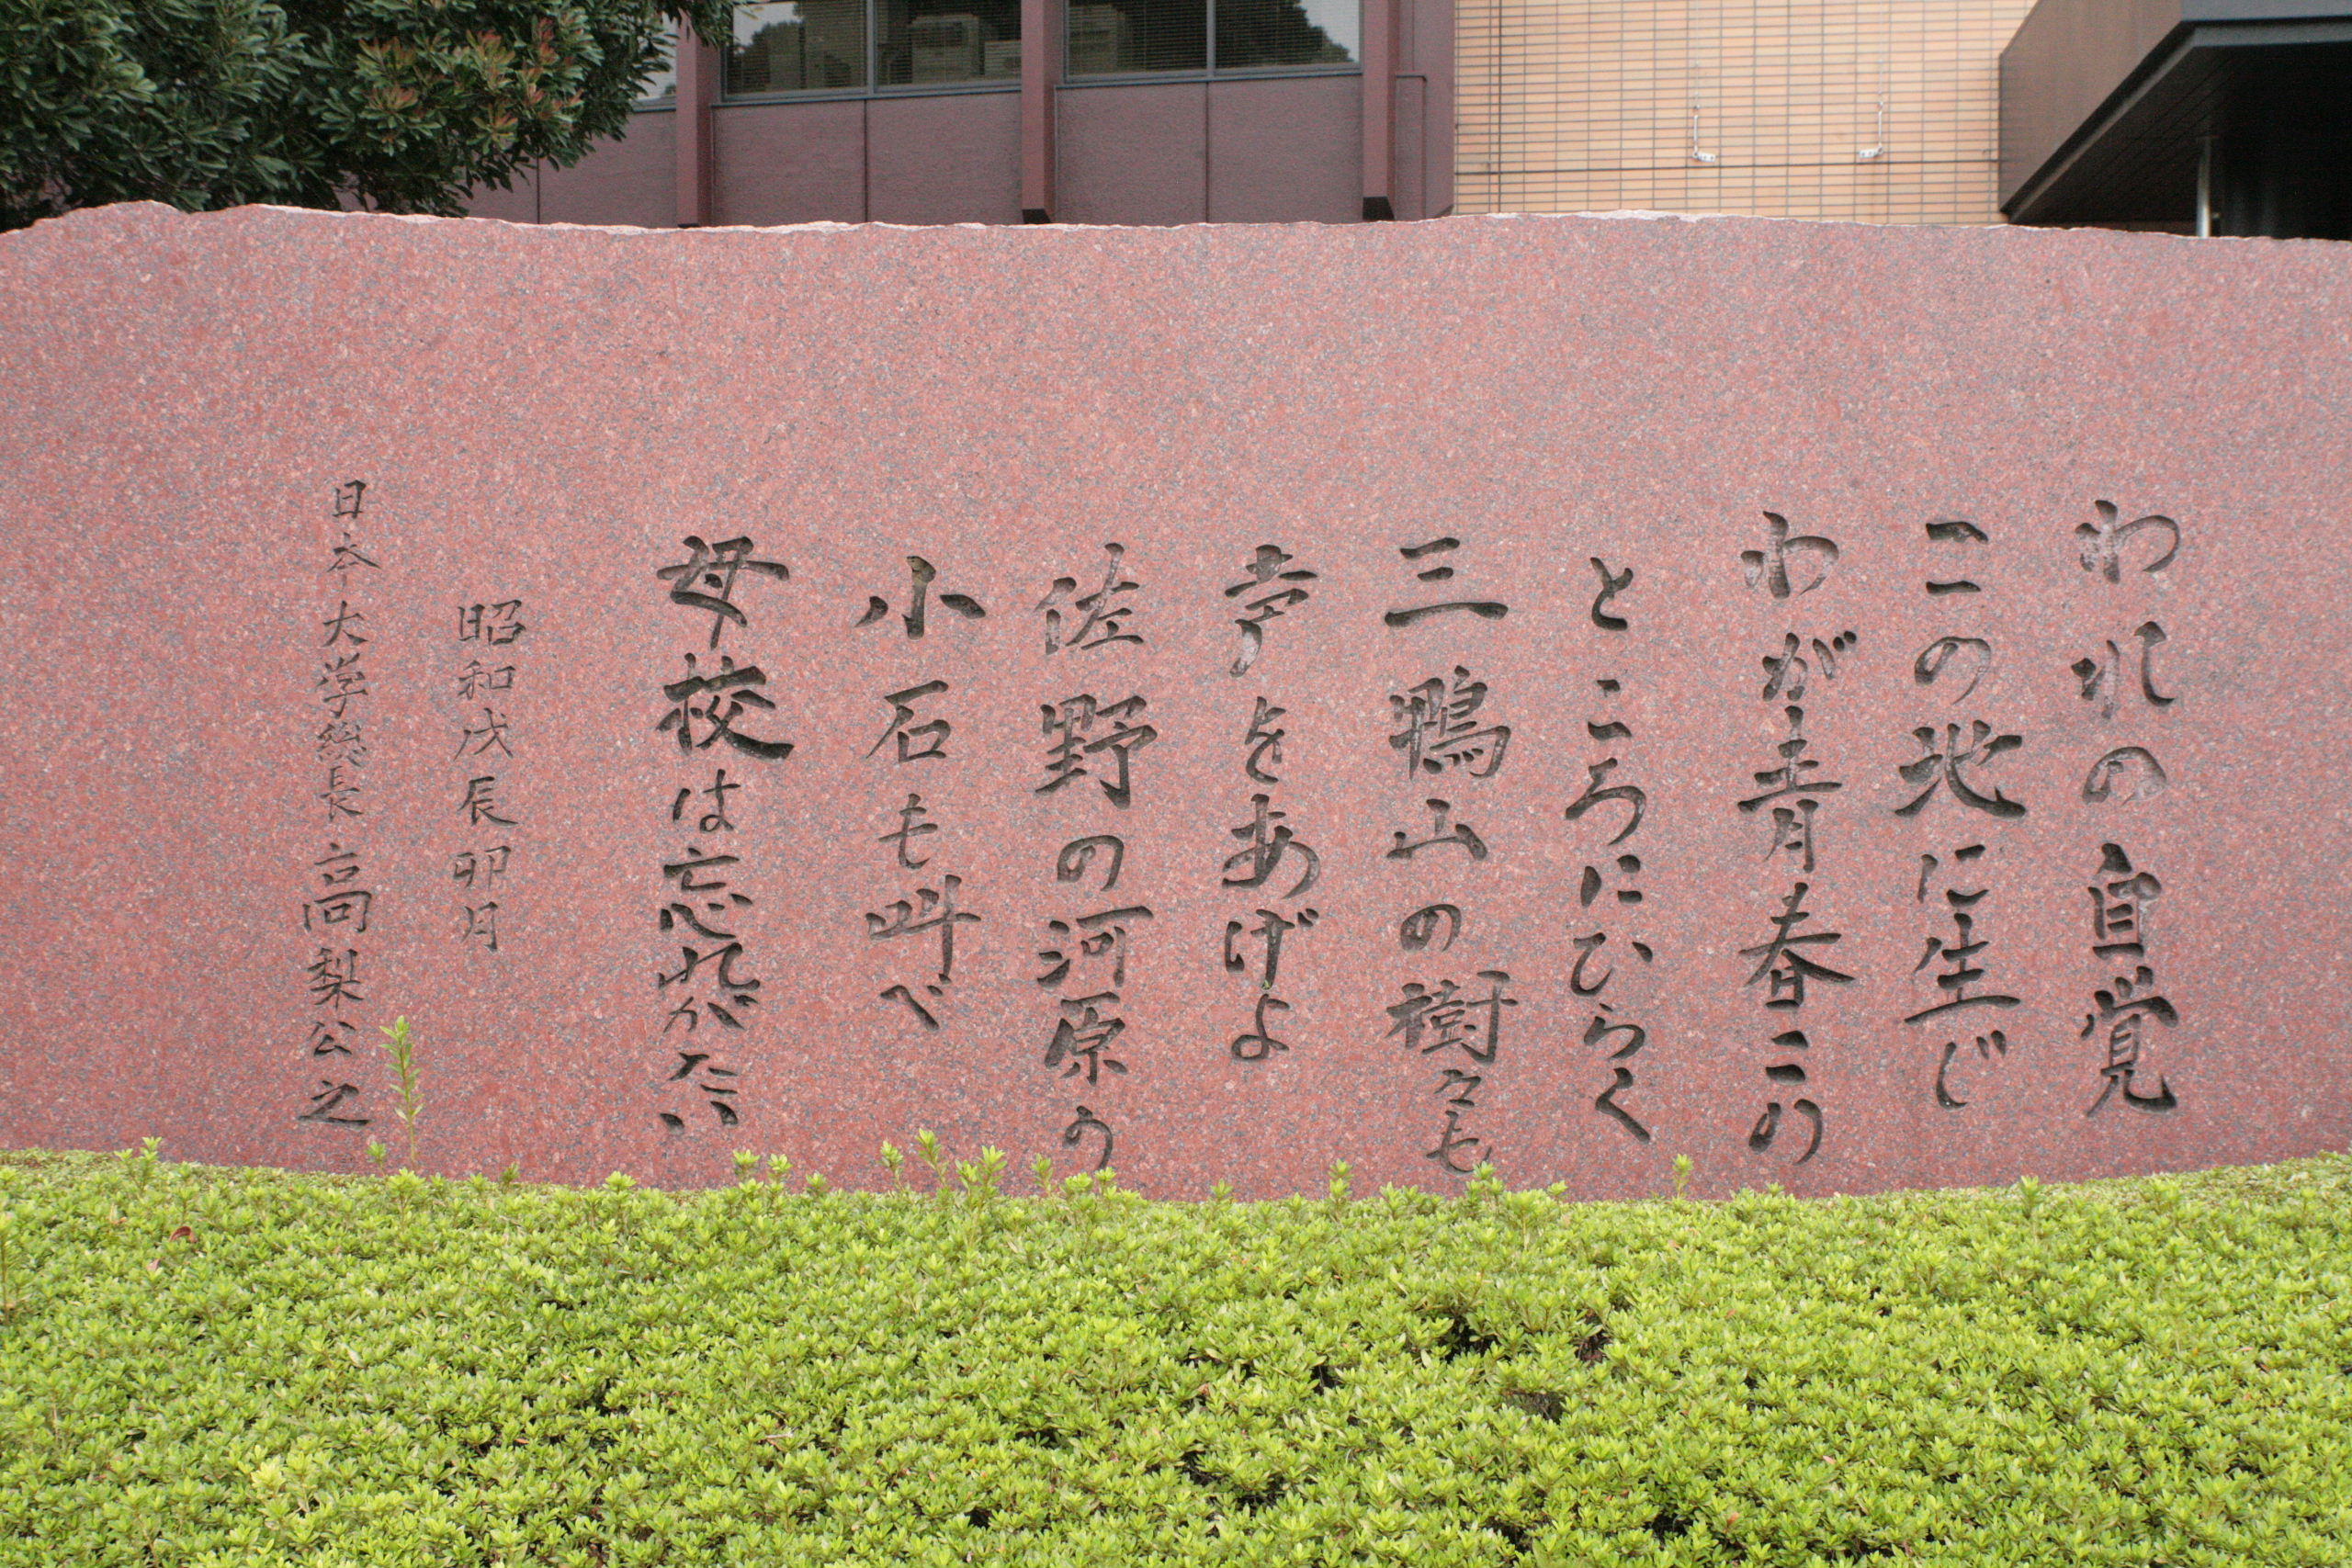 われの自覚
この地に生じ
わが青春この
ところにひらく
三鴨山の樹々も
声をあげよ
佐野の河原の
小石も叫べ
母校は忘れがたい
昭和戊辰卯月
日本大学総長高梨公之